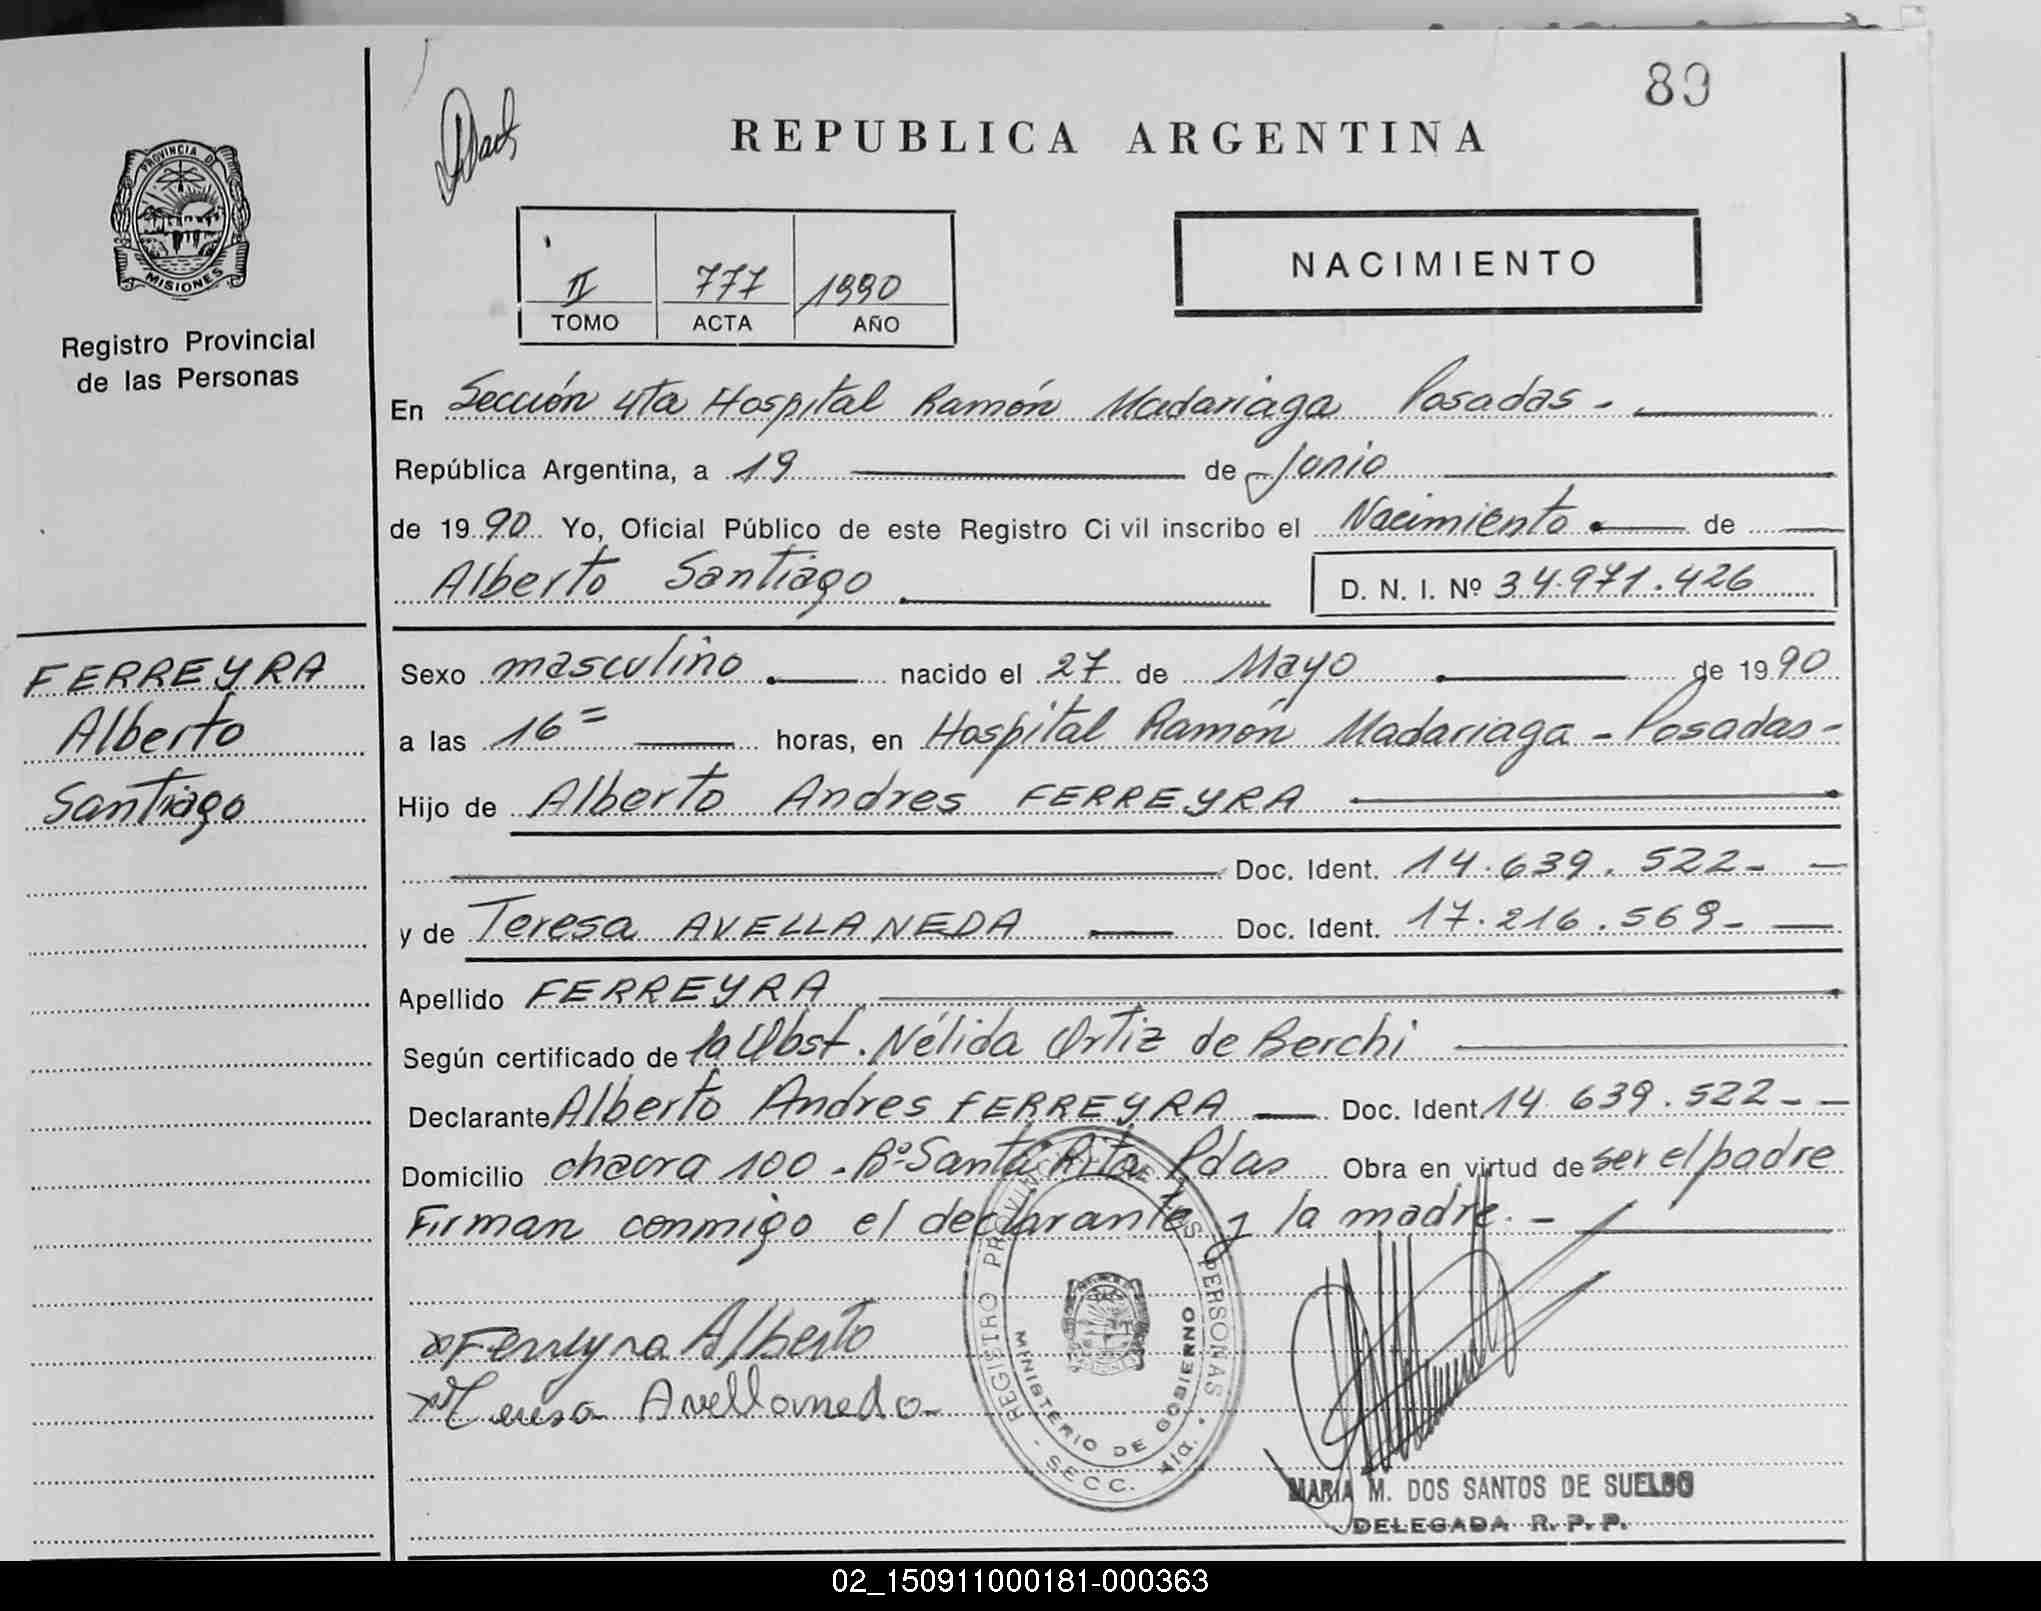 89
REPUBLICA ARGENTINA
PROVINCIA D
MISIONES
Registro Provincial
de las Personas
II 777 1990
TOMO ACTA AÑO
NACIMIENTO
En Sección 4ta Hospital Ramón Madariaga Posadas -
República Argentina, a 19 de Junio
de 19 90 Yo, Oficial Público de este Registro Civil inscribo el Nacimiento de
Alberto Santiago D. N. I. Nº 34.971.426
FERREYRA
Alberto
Santiago
Sexo masculino nacido el 27 de Mayo de 19 90
a las 16= horas, en Hospital Ramón Madariaga - Posadas -
Hijo de Alberto Andres FERREYRA
Doc. Ident. 14.639.522 -
y de Teresa AVELLANEDA Doc. Ident. 17.216.569 -
Apellido FERREYRA
Según certificado de la Obst. Nélida Ortiz de Berchi
Declarante Alberto Andres FERREYRA Doc. Ident. 14.639.522 - -
Domicilio chacra 100 - Bº Santa Rita Pdas Obra en virtud de ser el padre
Firman conmigo el declarante y la madre. -
Ferreyra Alberto
Teresa Avellaneda
REGISTRO PROVINCIAL DE LAS PERSONAS
MINISTERIO DE GOBIERNO
- SECC. 4ta. -
MARIA M. DOS SANTOS DE SUELDO
DELEGADA R. P. P.
02_150911000181-000363